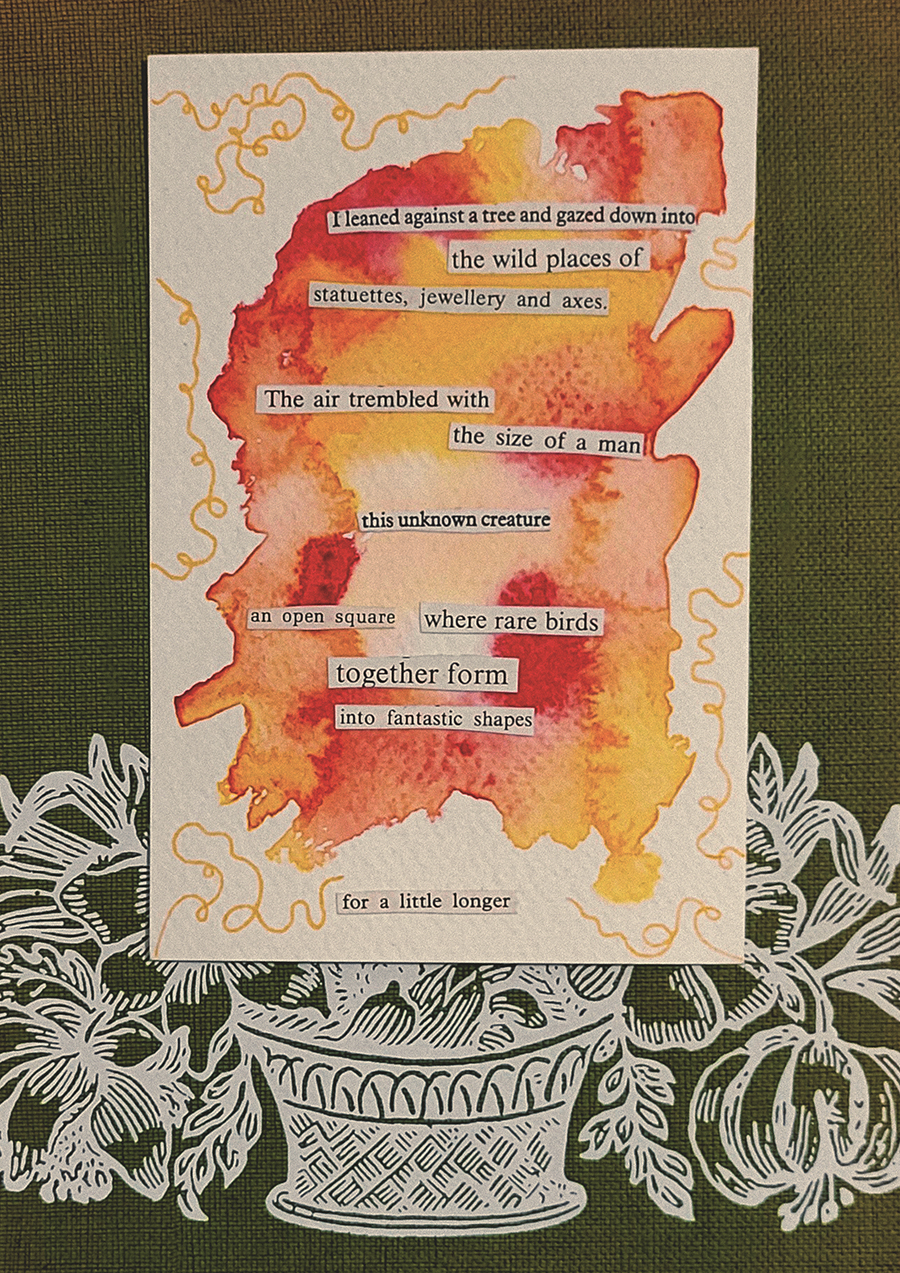 I leaned against a tree and gazed down into
the wild places of
statuettes, jewellery and axes.
The air trembled with
the size of a man
this unknown creature
an open square where rare birds
together form
into fantastic shapes
for a little longer